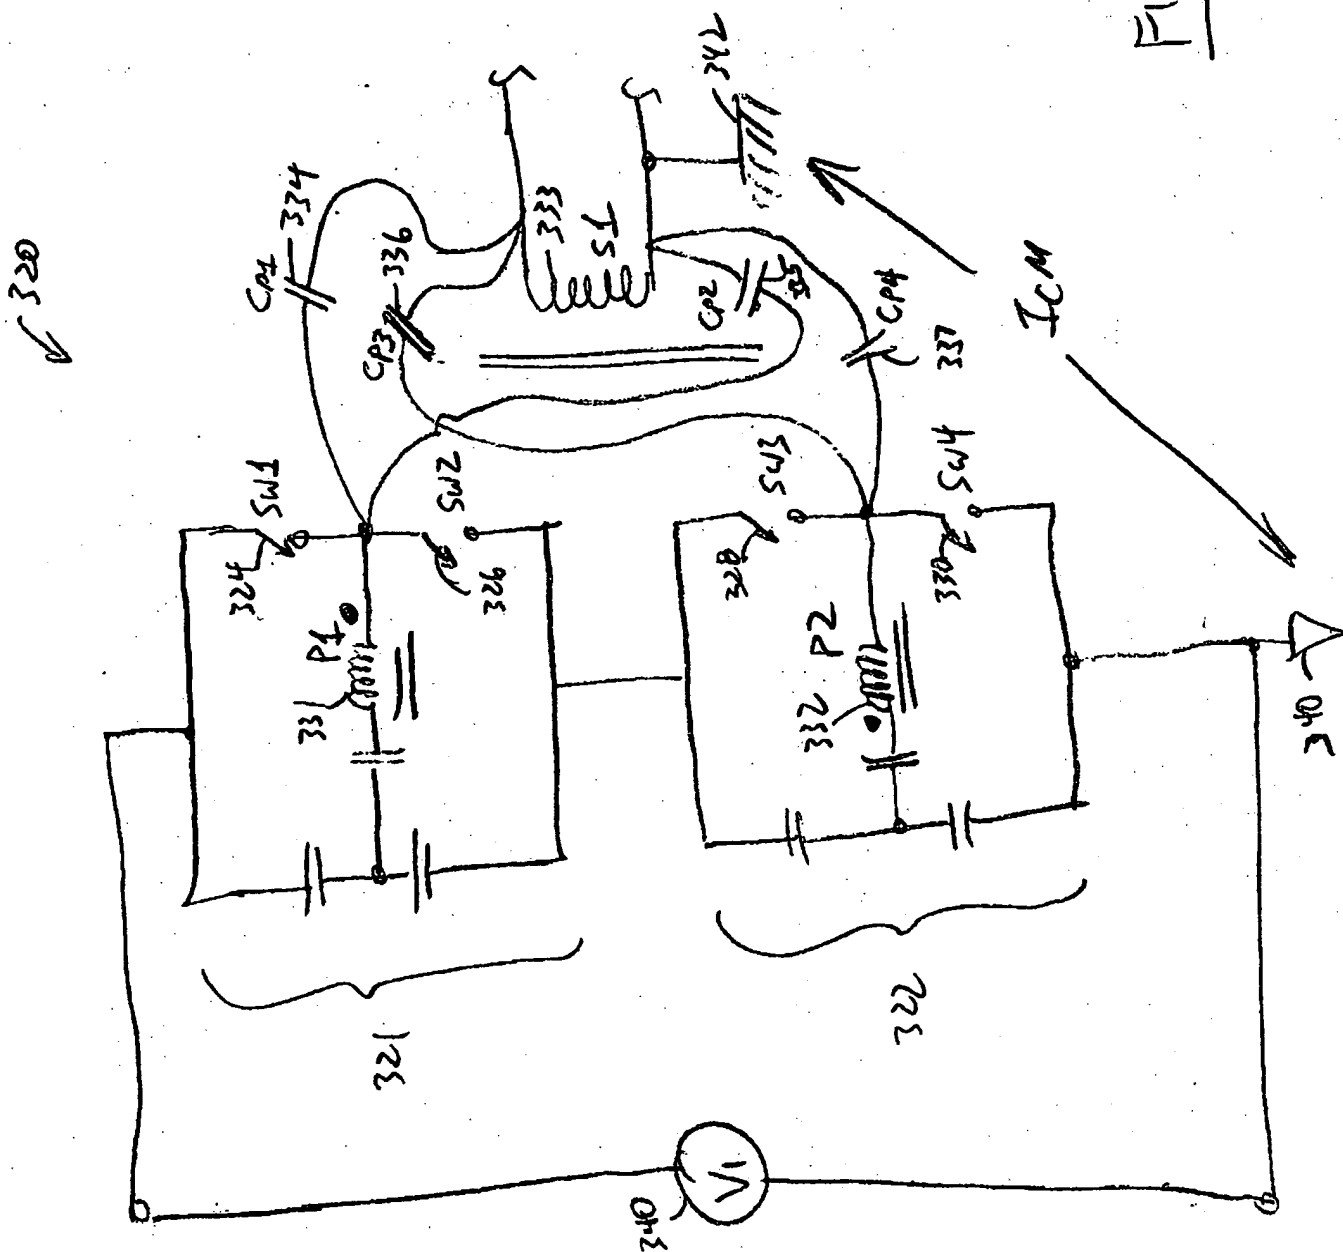 320
CP1
334
CP3
336
333
S1
342
CP2
335
CP4
337
ICM
SW1
324
SW2
326
SW3
328
SW4
330
P1
331
P2
332
321
322
V1
340
340